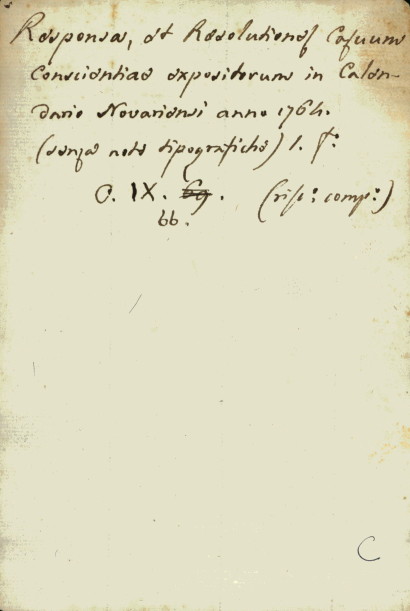 Responsa, et Resolutiones Casuum
Conscientiae expositorum in Calen-
dario Novariensi anno 1764.
(senza note tipografiche) 1. f.º
O. IX. 69. (risp.º comp.º)
66.
C